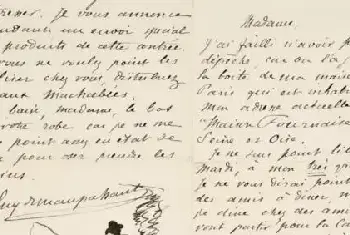 Je vous annonce
un envoi spécial
produits de cette contrée.
ne voulez point les
chez vous, distribuez
aux Machabées.
madame, le bas
votre robe car je ne
point en état de
pour les
Guy de Maupassant
Madame,
J'ai failli n'avoir p
dépêche, car on l'a
la boîte de ma mais
Paris qui est inhabit
mon adresse actuelle
"Maison Fournaise
Seine et Oise.
Je ne suis point lib
mardi, à mon très g
Je ne vous dirai point
des amis à dîner, m
je dîne chez des ami
vont partir pour la Ca